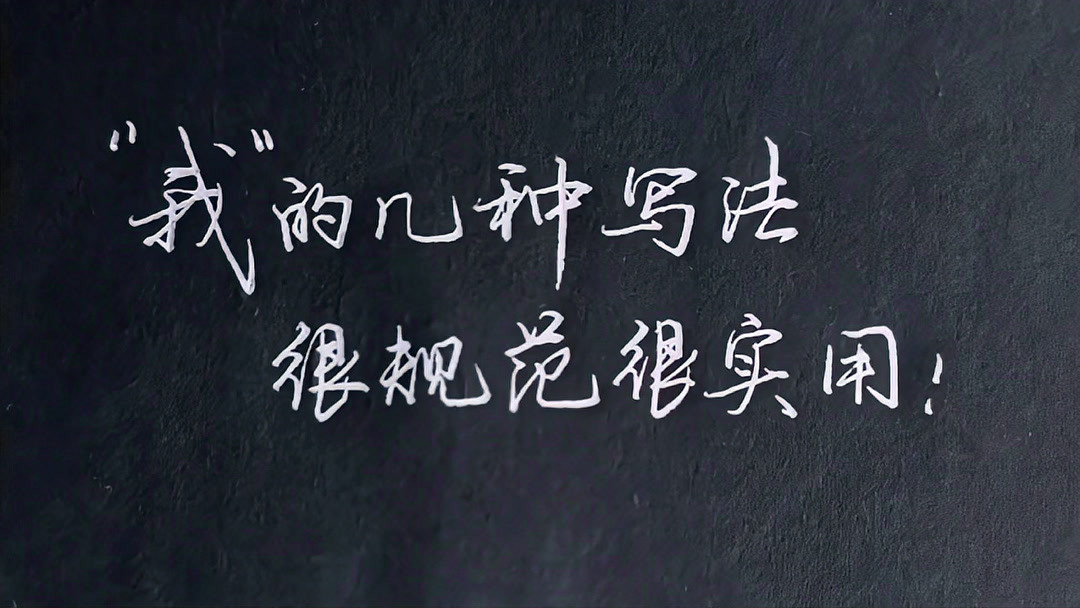 “我”的几种写法
很规范很实用！